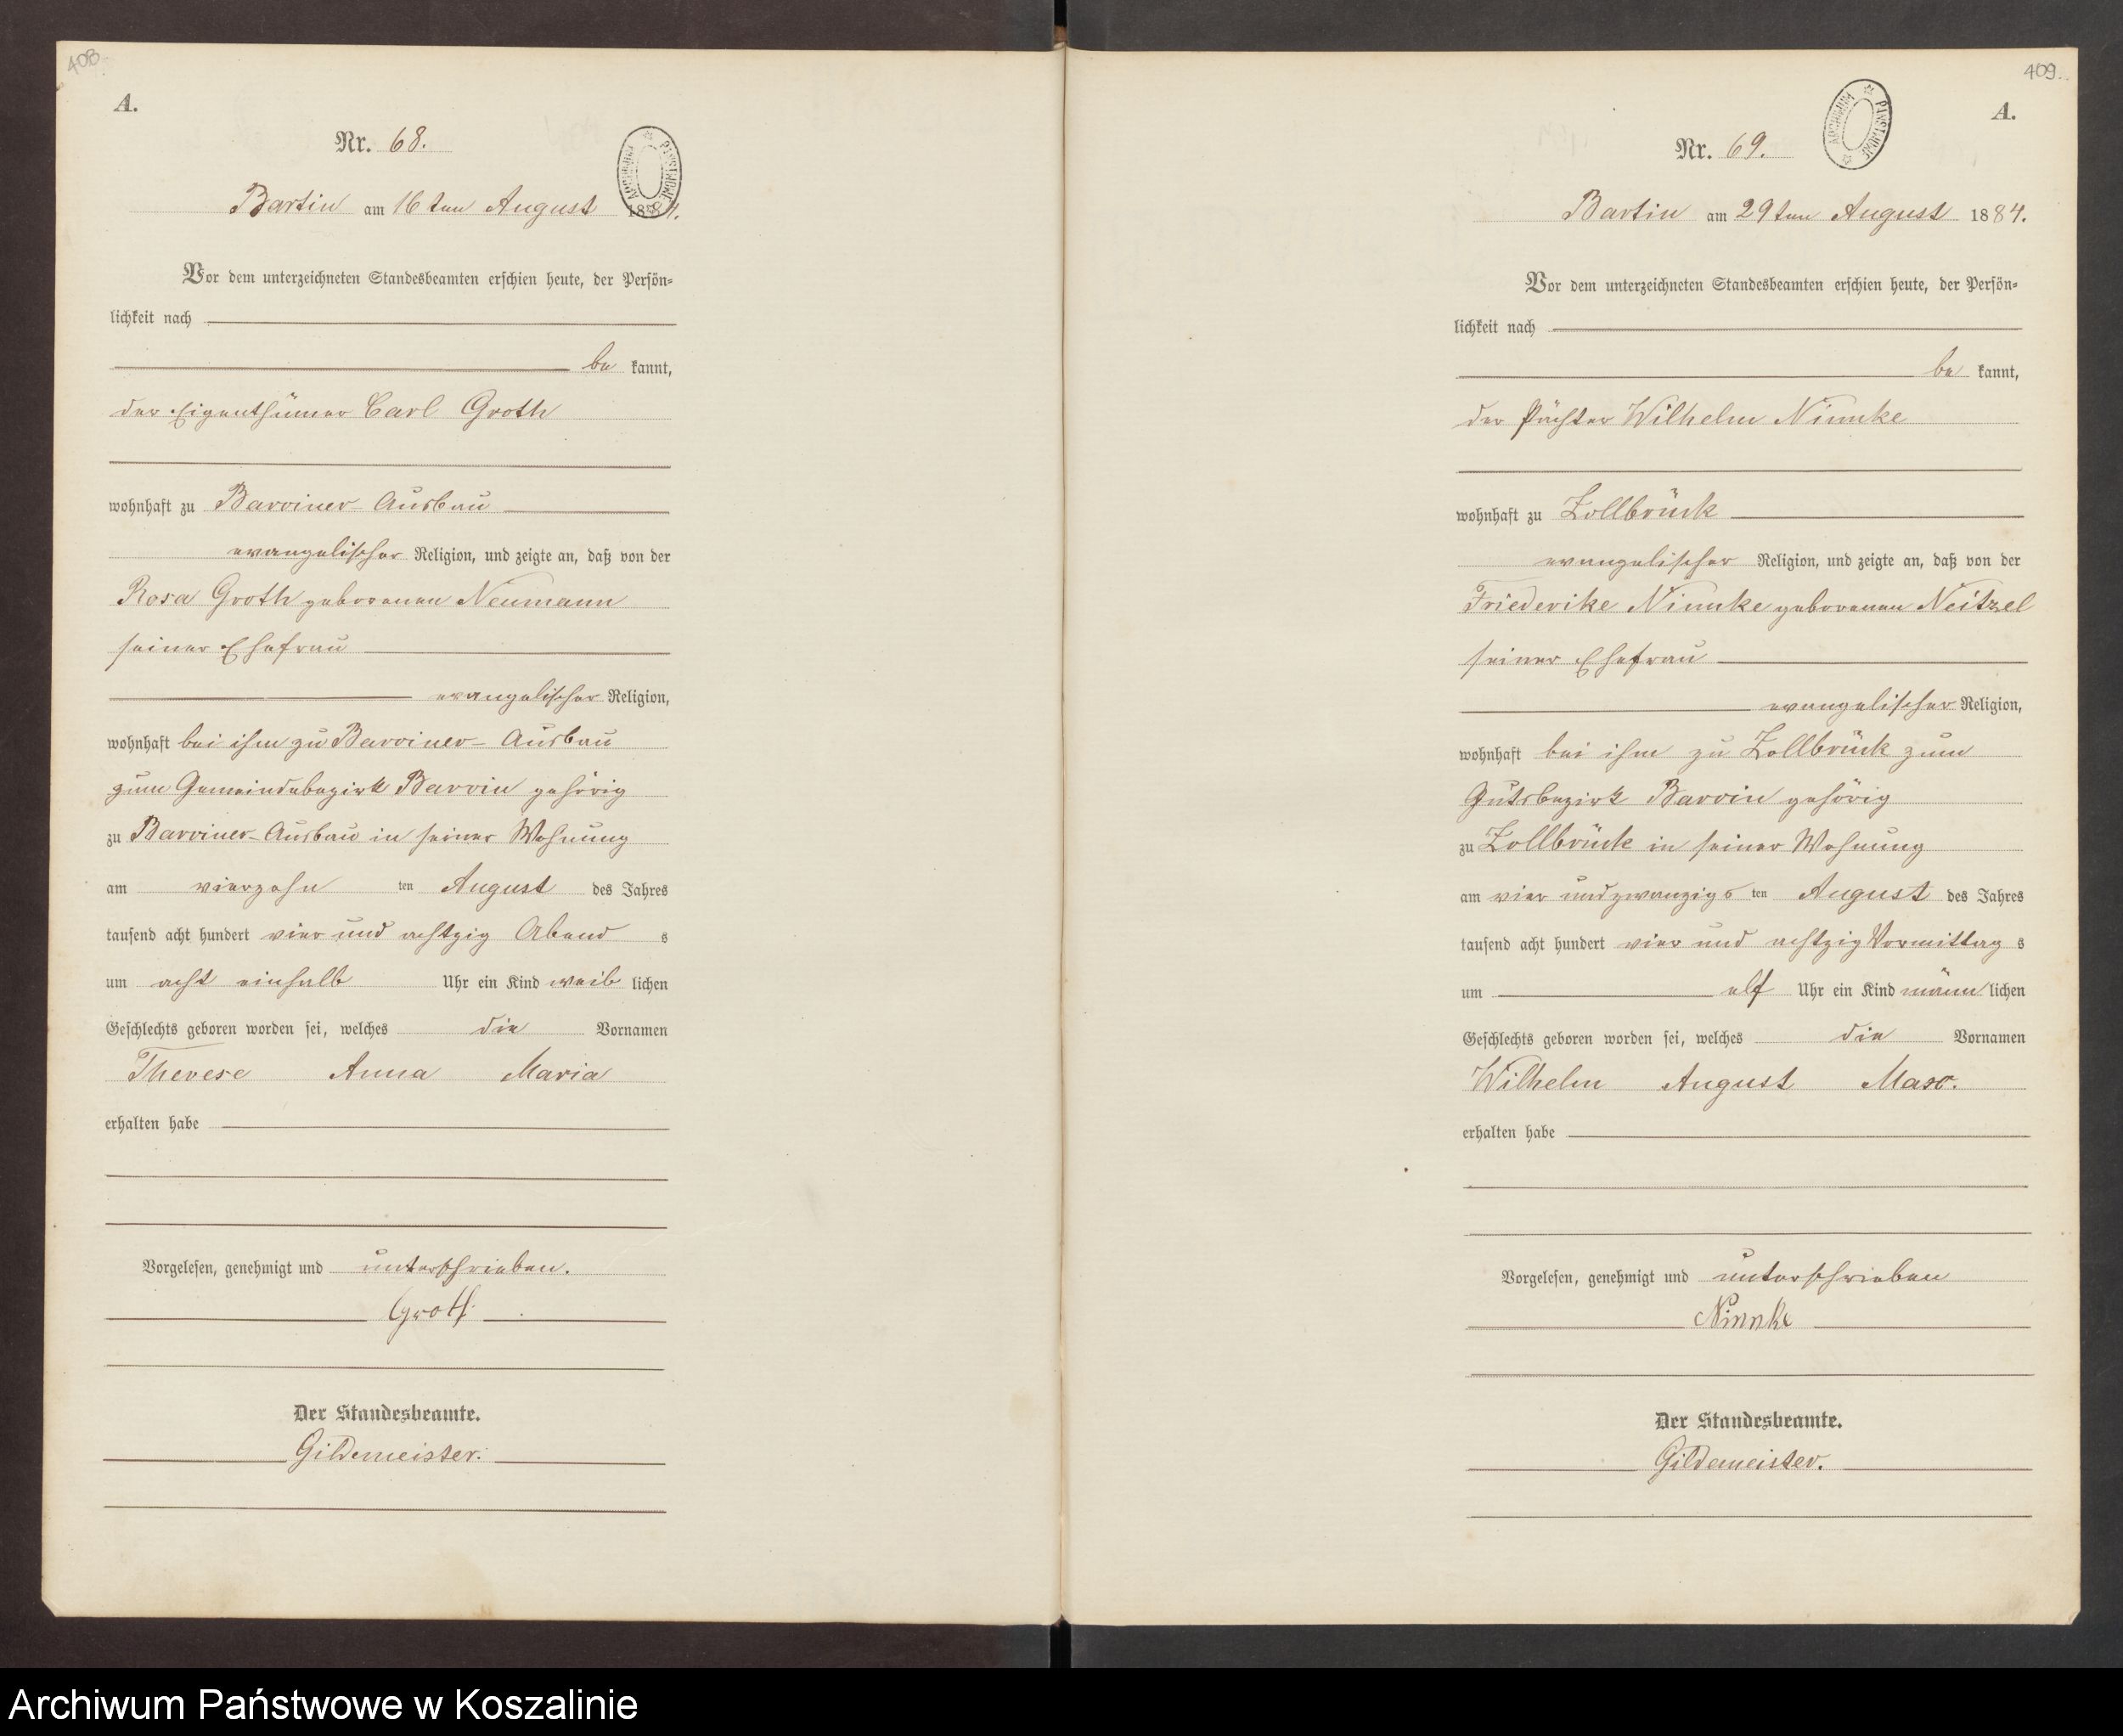 408
A.
Nr. 68.
ARCHIWUM PAŃSTWOWE
Bartin am 16ten August 1884.
Vor dem unterzeichneten Standesbeamten erschien heute, der Persön-
lichkeit nach
be kannt,
der Eigenthümer Carl Groth
wohnhaft zu Barviner-Ausbau
evangelischer Religion, und zeigte an, daß von der
Rosa Groth geborenen Neumann
seiner Ehefrau
evangelischer Religion,
wohnhaft bei ihm zu Barviner-Ausbau
zum Gemeindebezirk Barvin gehörig
zu Barviner-Ausbau in seiner Wohnung
am vierzehn ten August des Jahres
tausend acht hundert vier und achtzig Abend s
um acht einhalb Uhr ein Kind weib lichen
Geschlechts geboren worden sei, welches die Vornamen
Therese Anna Maria
erhalten habe
Vorgelesen, genehmigt und unterschrieben.
Groth
Der Standesbeamte.
Gildemeister.
409.
A.
Nr. 69.
ARCHIWUM PAŃSTWOWE
Bartin am 29ten August 1884.
Vor dem unterzeichneten Standesbeamten erschien heute, der Persön-
lichkeit nach
be kannt,
der Pächter Wilhelm Nimmke
wohnhaft zu Zollbrück
evangelischer Religion, und zeigte an, daß von der
Friederike Nimmke geborenen Neitzel
seiner Ehefrau
evangelischer Religion,
wohnhaft bei ihm zu Zollbrück zum
Gutsbezirk Barvin gehörig
zu Zollbrück in seiner Wohnung
am vier und zwanzigs ten August des Jahres
tausend acht hundert vier und achtzig Vormittag s
um elf Uhr ein Kind männ lichen
Geschlechts geboren worden sei, welches die Vornamen
Wilhelm August Max.
erhalten habe
Vorgelesen, genehmigt und unterschrieben
Nimmke
Der Standesbeamte.
Gildemeister.
Archiwum Państwowe w Koszalinie